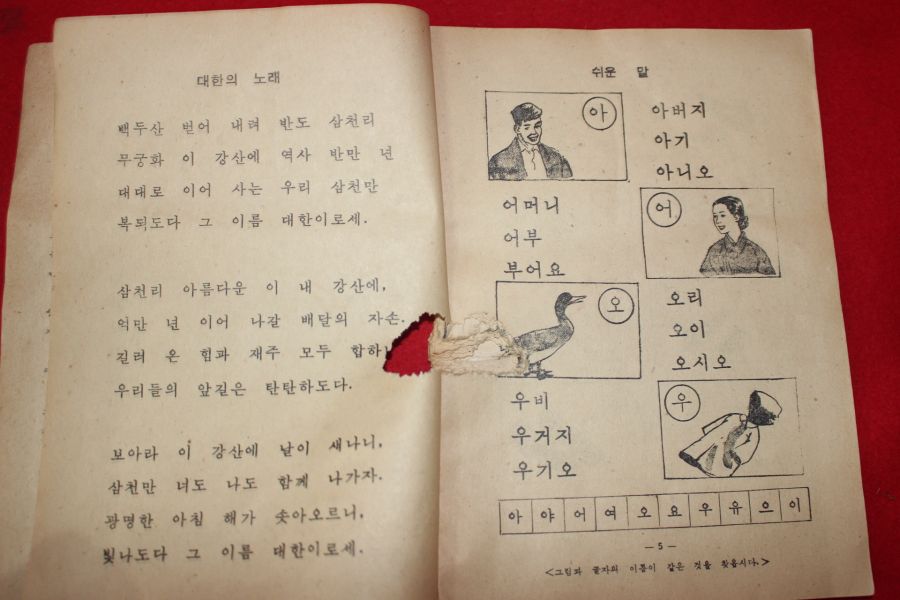 대한의 노래
백두산 벋어 내려 반도 삼천리
무궁화 이 강산에 역사 반만 년
대대로 이어 사는 우리 삼천만
복되도다 그 이름 대한이로세.
삼천리 아름다운 이 내 강산에,
억만 년 이어 나갈 배달의 자손.
길러 온 힘과 재주 모두 합하니
우리들의 앞길은 탄탄하도다.
보아라 이 강산에 날이 새나니,
삼천만 너도 나도 함께 나가자.
광명한 아침 해가 솟아오르니,
빛나도다 그 이름 대한이로세.
쉬운 말
아
아버지
아기
아니오
어머니
어부
부어요
어
오
오리
오이
오시오
우비
우거지
우기오
우
아 야 어 여 오 요 우 유 으 이
— 5 —
<그림과 글자의 이름이 같은 것을 찾읍시다.>